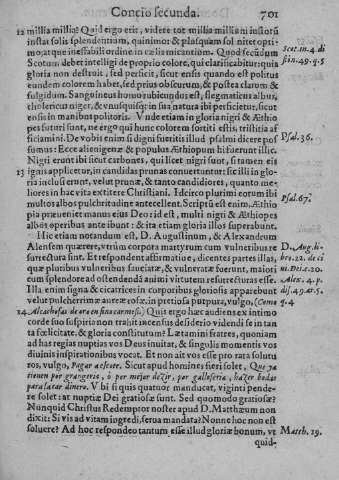 Concio secunda. 701
12 millia millia? Quid ergo erit, videre tot millia millium instar
instat solis splendentium, quinimo; & plusquam sol nitet opti-
mo; atque ineffabili ordine in cælis micantium? Quod secũdum
Scotum debet intelligi de proprio colore, qui clarificabitur: quia
gloria non destruit, sed perficit, sicut ensis quando est politus
eundem colorem habet, sed prius obscurum, & postea clarum &
fulgidum. Sanguineus homo rubicundus est, flegmaticus albus,
cholericus niger, & vnusquisq; in sua natura ibi perficietur, sicut
ensis in manibus politoris. Vnde etiam in gloria nigri & Æthio
pes futuri sunt, ne ergo qui hunc colorem sortiti estis, tristitia af
ficiamini. De vobis enim si digni fueritis illud psalmi dicere pos
sumus: Ecce alienigenæ & populus Æthiopum hi fuerunt illic.
Nigri erunt ibi sicut carbones, qui licet nigri sunt, si tamen eis
13 ignis applicetur, in candidas prunas conuertuntur: sic illi in glo-
ria inclusi erunt, velut prunæ, & tanto candidiores, quanto me-
liores in hac vita extitere Christiani. Idcirco plurimi eorum ibi
multos albos pulchritudine antecellent. Scriptũ est enim. Æthio
pia præueniet manus eius Deo id est, multi nigri & Æthiopes
albos operibus ante ibunt: & ita etiam gloria illos superabunt.
Hic etiam notandum est, D. Augustinum, & Alexandrum
Alensem quærere, vtrùm corpora martyrum cum vulneribus re
surrectura sint. Et respondent affirmatiuè, dicentes partes illas,
quæ plutibus vulneribus sauciatæ, & vulneratæ fuerunt, maiori
cum splendore ad ostendendã animi virtutem resurrecturas esse.
Illa enim signa & cicatrices in corporibus gloriosis apparebunt
velut pulcherrimæ aureæ rosæ. in pretiosa putpura, vulgo, (Como
14 Alcachofas de oro en fino carmesi.) Quis ergo hæc audiens ex intimo
corde suo suspiria non trahit incensus desiderio videndi se in tan
ta fœlicitate, & gloria constitutum? Lætamini fratres, quoniam
ad has regias nuptias vos Deus inuitat, & singulis momentis vos
diuinis inspirationibus vocat. Et non ait vos esse pro rata solutu
ros, vulgo, Pagar a escote. Sicut apud homines fieri solet, Que ya
tienen por grangeria, ò por mejor dezir, por galloferia, hazer bodas
para sacar dinero. Vbi si quis quatuor manducat, viginti pende-
re solet: at nuptiæ Dei gratiosæ sunt. Sed quomodo gratiosæ?
Nunquid Christus Redemptor noster apud D. Matthæum non
dixit: Si vis ad vitam ingredi, serua mandata? Nonne hoc non est
soluere? Ad hoc respondeo tantum esse illud gloriæ bonum, vt
quid-
Scot. in. 4. di
stin. 49. q. 5
Psal. 36.
Psal. 67.
D. Aug. li-
bro. 22. de ci
ui. Dei. c. 20.
Alex. 4. p.
q. 4
Matth. 19.